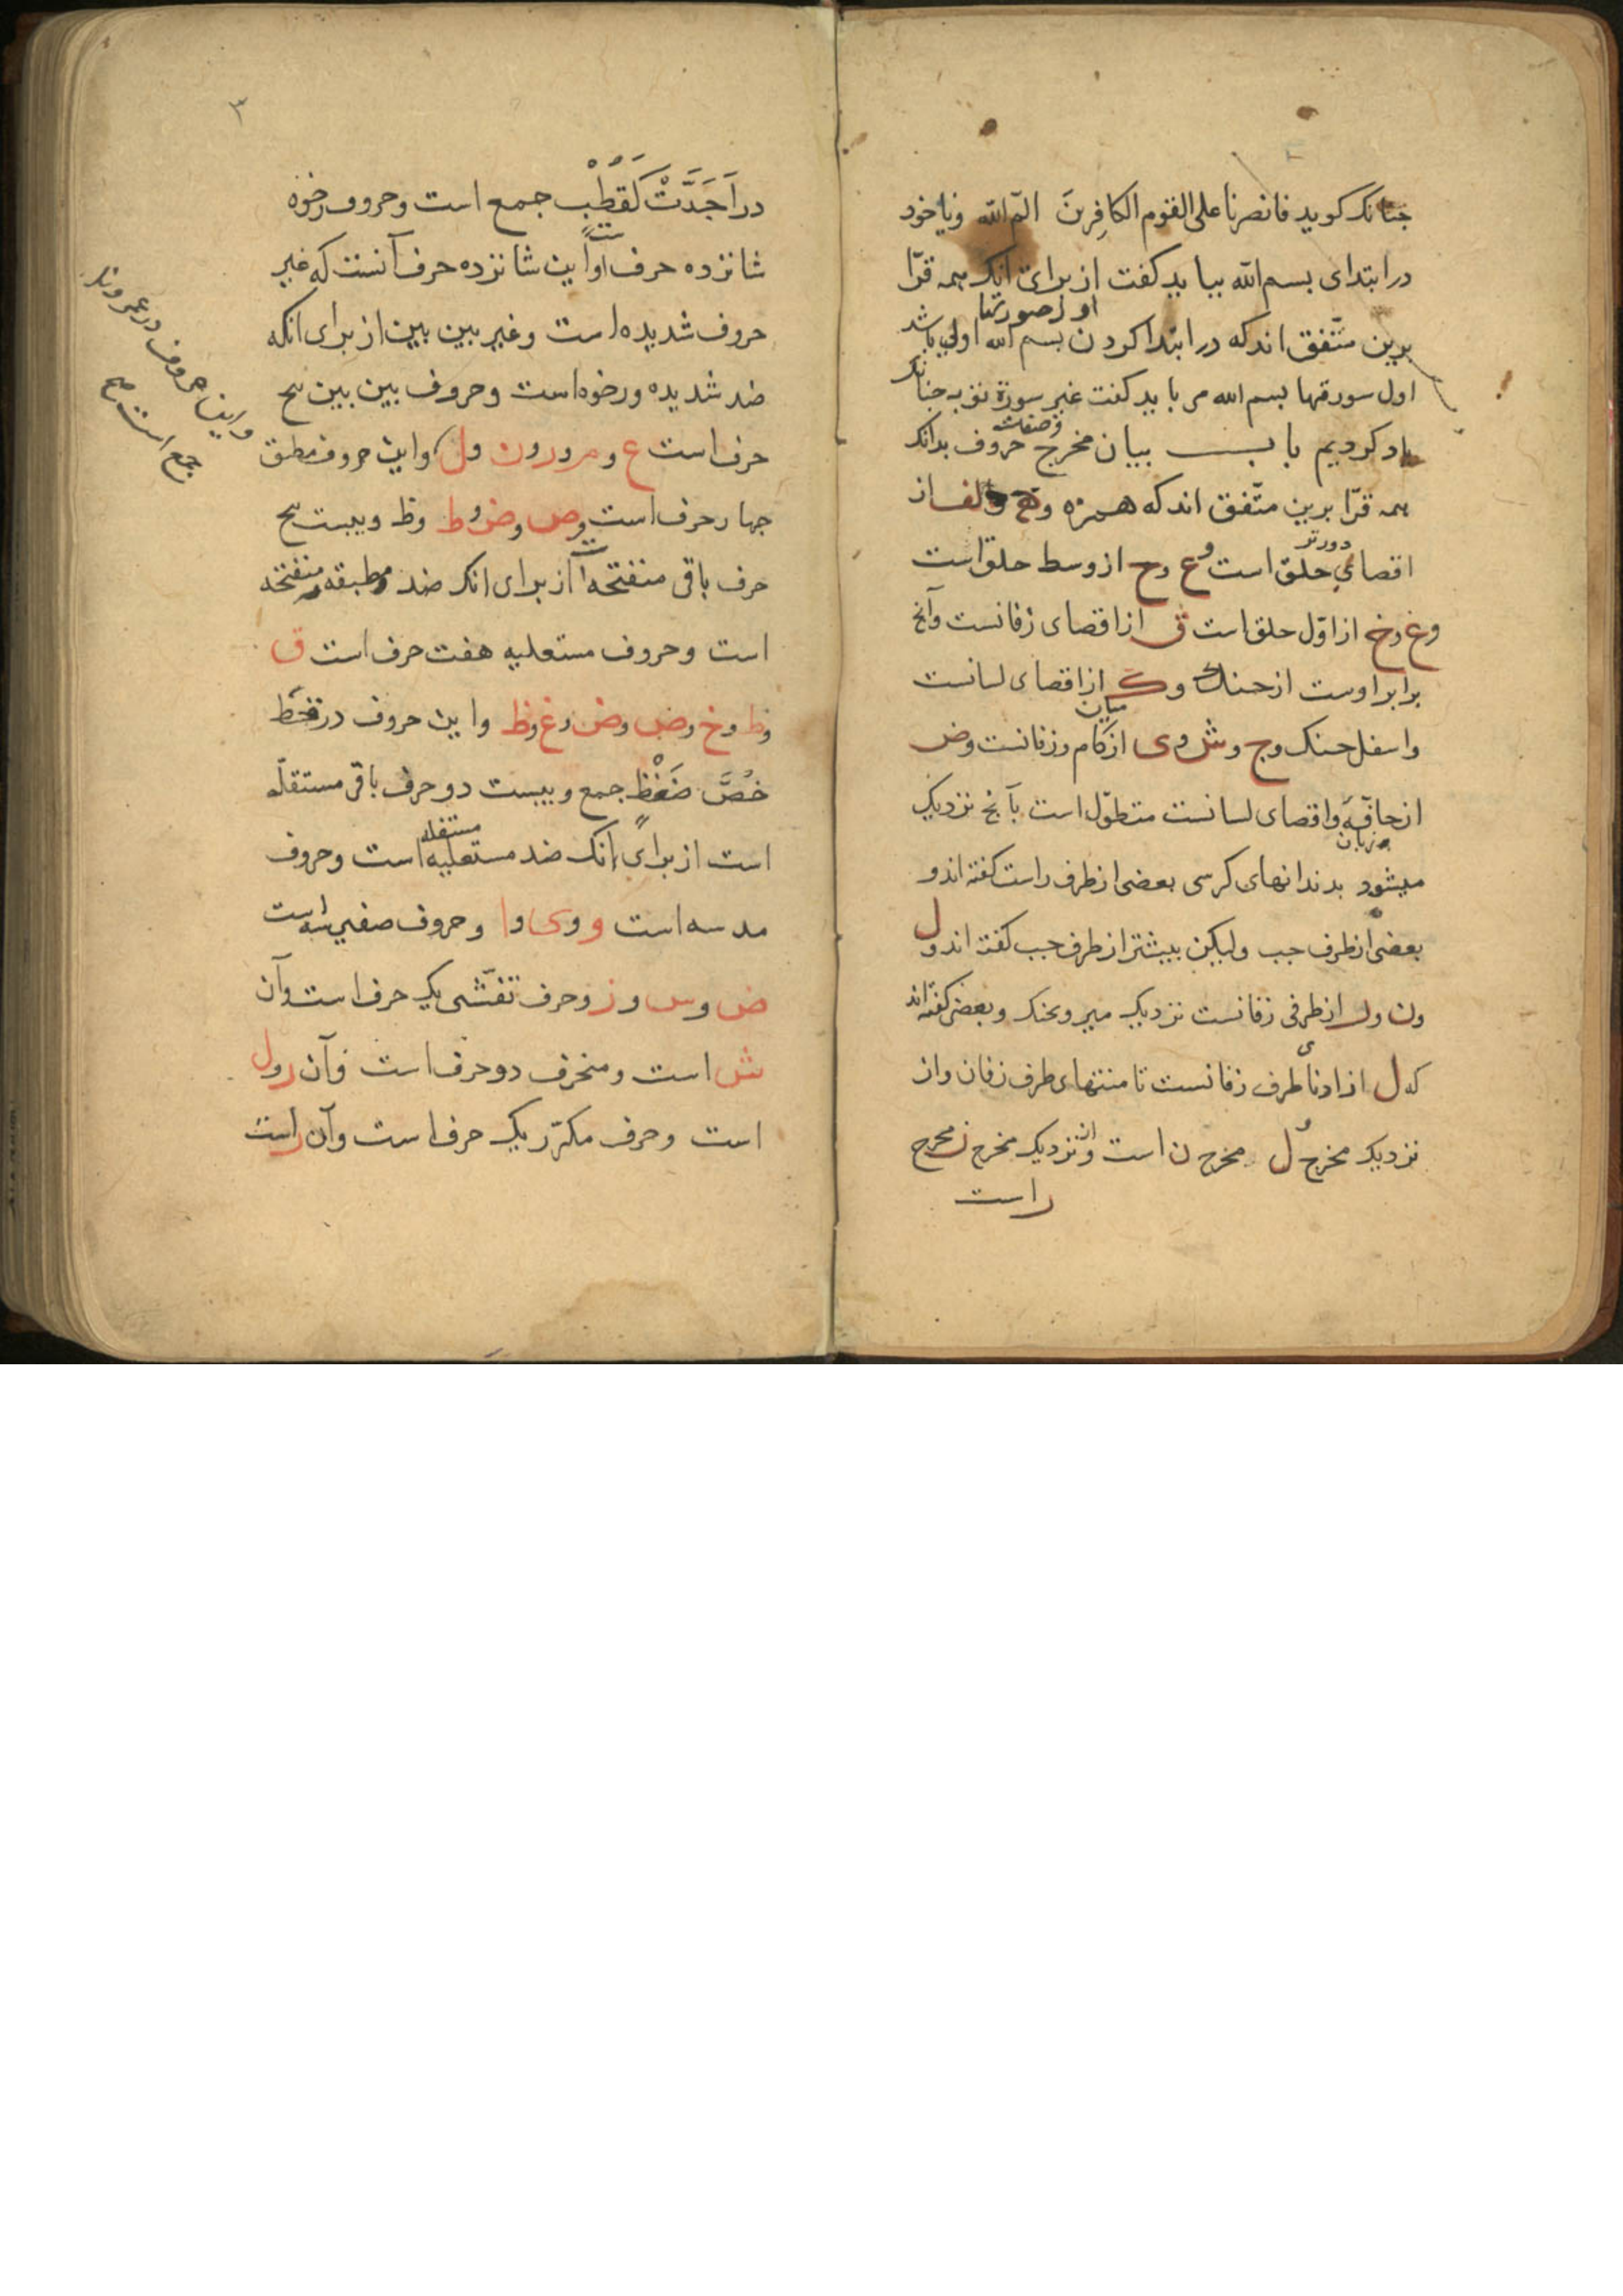 جنانک کوید فانصرنا علی القوم الکافرینَ الم الله ویا خود
در ابتدای بسم الله بباید کفت از برای انک همه قرّا
برین متّفق اند که در ابتدا کردن بسم الله اولی باشد
او اصورتها
اول سورتها بسم الله می باید کفت غیر سورة توبه جنانک
یاد کردیم باب بیان مخرج وصفات حروف بدانک
همه قرّا برین متّفق اند که همزه وه والف از
اقصای حلق است وع وح از وسط حلق است
دورتر
وغ وخ از اوّل حلق است ق از اقصای زفانست وآنج
برابر اوست از حنک وک از اقصای لسانست
واسفل حنک وج وش وی از میان کام وزفانست وض
از حافّهٔ واقصای لسانست متطوّل است بآنج نزدیک
زبان
میشود بدندانهای کرسی بعضی از طرف راست کفته اند و
بعضی از طرف جب ولیکن بیشتر از طرف جب کفته اند ول
ون ور از طرفی زفانست نزدیک میرو بحنک وبعضی کفته اند
که ل از ادنای طرف زفانست تا منتهای طرف زفان واز
نزدیک مخرج ل مخرج ن است واز نزدیک مخرج ن مخرج
راست
٣
در اَجَدَّتْ کَقُطْبٍ جمع است وحروف رخوه
شانزده حرف است واین شانزده حرف آنست که غیر
حروف شدیده است وغیر بین بین از برای انکه
ضد شدیده ورخوه است وحروف بین بین پنج
حرف است ع وم ور ون ول واین حروف مطبق
واین حروف در عمرو نل
جمع است صح
جهار حرف است ص وض وط وظ وبیست پنج
حرف باقی منفتحه است از برای انک ضد مطبقه منفتحه
است وحروف مستعلیه هفت حرف است ق
وط وخ وص وض وغ وظ واین حروف در قظ
خُصَّ ضَغْطٍ جمع وبیست دو حرف باقی مستفله
است از برای انک ضد مستعلیه مستفله است وحروف
مد سه است و وی وا وحروف صفیر سه است
ص وس وز وحرف تفشّی یک حرف است وآن
ش است ومنحرف دو حرف است وآن ر ول
است وحرف مکرّر یک حرف است وآن راست